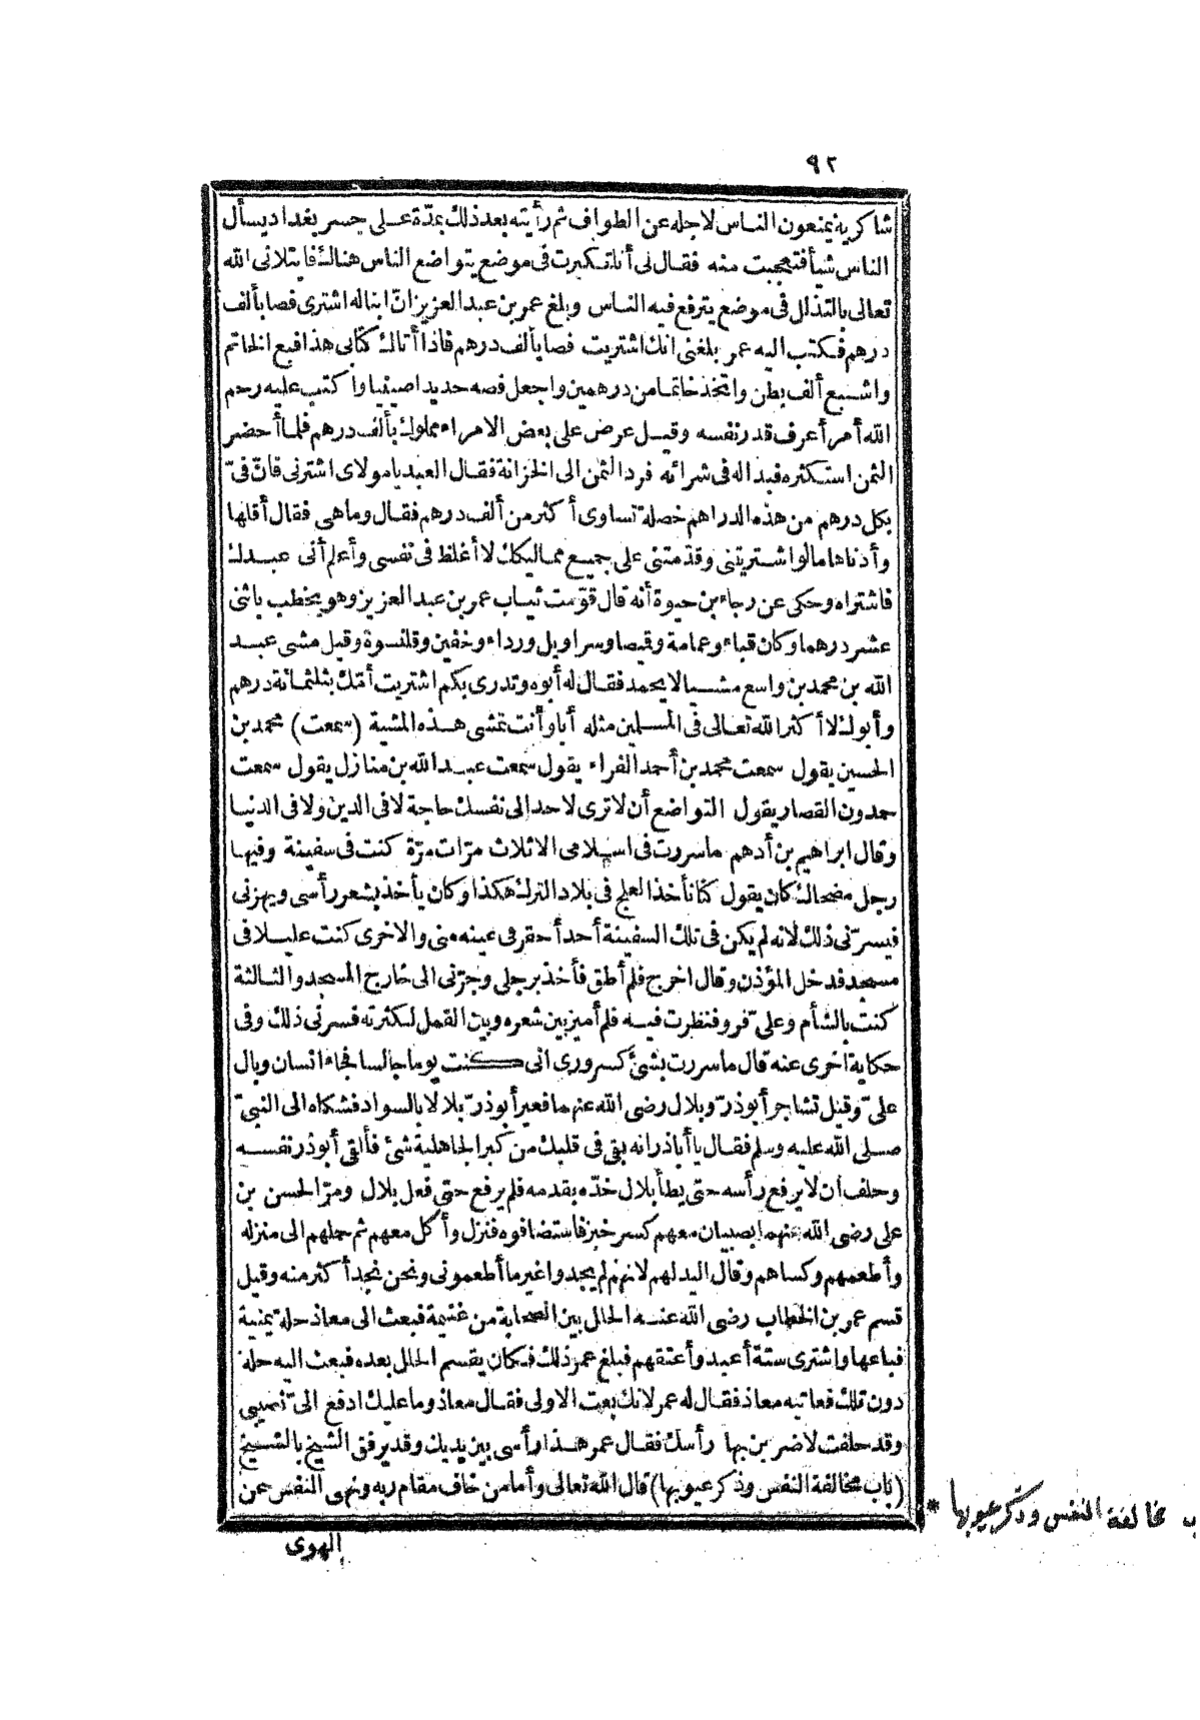 ٩٢
شاكرية يمنعون الناس لاجله عن الطواف ثم رأيته بعد ذلك بمدّة على جسر بغداد يسأل
الناس شيأ فتعجبت منه فقال لى أنا تكبرت فى موضع يتواضع الناس هناك فابتلانى الله
تعالى بالتذلل فى موضع يترفع فيه الناس وبلغ عمر بن عبد العزيز انّ ابنا له اشترى فصا بألف
درهم فكتب اليه عمر بلغنى انك اشتريت فصا بألف درهم فاذا أتاك كتابى هذا فبع الخاتم
واشبع ألف بطن واتخذ خاتما من درهمين واجعل فصه حديدا صينيا واكتب عليه رحم
الله أمرأ عرف قدر نفسه وقيل عرض على بعض الامراء مملوك بألف درهم فلما أحضر
الثمن استكثره فبدا له فى شرائه فرد الثمن الى الخزانة فقال العبد يا مولاى اشترنى فانّ فىّ
بكل درهم من هذه الدراهم خصلة تساوى أكثر من ألف درهم فقال وما هى فقال أقلها
وأدناها ما لو اشتريتنى وقدّمتنى على جميع مماليكك لا أغلط فى نفسى وأعلم أنى عبدك
فاشتراه وحكى عن رجاء بن حيوة أنه قال قوّمت ثياب عمر بن عبد العزيز وهو يخطب باثنى
عشر درهما وكان قباء وعمامة وقيصا وسراويل ورداء وخفين وقلنسوة وقيل مشى عبد
الله بن محمد بن واسع مشيا لا يحمد فقال له أبوه وتدرى بكم اشتريت أمّك بثلثمائة درهم
وأبوك لا أكثر الله تعالى فى المسلمين مثله أبا وأنت تمشى هذه المشية (سمعت) محمد بن
الحسين يقول سمعت محمد بن أحمد الفراء يقول سمعت عبد الله بن منازل يقول سمعت
حمدون القصار يقول التواضع أن لا ترى لاحد الى نفسك حاجة لا فى الدين ولا فى الدنيا
وقال ابراهيم بن أدهم ما سررت فى اسلامى الا ثلاث مرّات مرّة كنت فى سفينة وفيها
رجل مضحاك كان يقول كنا نأخذ العلج فى بلاد الترك هكذا وكان يأخذ بشعر رأسى ويهزنى
فيسرّنى ذلك لانه لم يكن فى تلك السفينة أحد أحقر فى عينه منى والاخرى كنت عليلا فى
مسجد فدخل المؤذن وقال اخرج فلم أطق فأخذ برجلى وجرّنى الى خارج المسجد والثالثة
كنت بالشأم وعلىّ فرو فنظرت فيه فلم أميز بين شعره وبين القمل لكثرته فسرنى ذلك وفى
حكاية اخرى عنه قال ما سررت بشئ كسرورى انى كنت يوما جالسا فجاء انسان وبال
علىّ وقيل تشاجر أبو ذرّ وبلال رضى الله عنهما فعير أبو ذرّ بلالا بالسواد فشكاه الى النبىّ
صلى الله عليه وسلم فقال يا أباذر انه بقى فى قلبك من كبر الجاهلية شئ فألقى أبو ذر نفسه
وحلف ان لا يرفع رأسه حتى يطأ بلال خدّه بقدمه فلم يرفع حتى فعل بلال ومرّ الحسن بن
على رضى الله عنهما بصبيان معهم كسر خبز فاستضافوه فنزل وأكل معهم ثم حملهم الى منزله
وأطعمهم وكساهم وقال اليد لهم لانهم لم يجدوا غير ما أطعمونى ونحن نجد أكثر منه وقيل
قسم عمر بن الخطاب رضى الله عنه الحلل بين الصحابة من غنيمة فبعث الى معاذ حلة يمنية
فباعها واشترى ستة أعبد وأعتقهم فبلغ عمر ذلك فكان يقسم الحلل بعده فبعث اليه حلة
دون تلك فعاتبه معاذ فقال له عمر لانك بعت الاولى فقال معاذ وما عليك ادفع الىّ نصيبى
وقد حلفت لاضربن بها رأسك فقال عمر هذا رأسى بين يديك وقد يرفق الشيخ بالشيخ
(باب مخالفة النفس وذكر عيوبها) قال الله تعالى وأما من خاف مقام ربه ونهى النفس عن
ب مخالفة النفس وذكر عيوبها *
الهوى